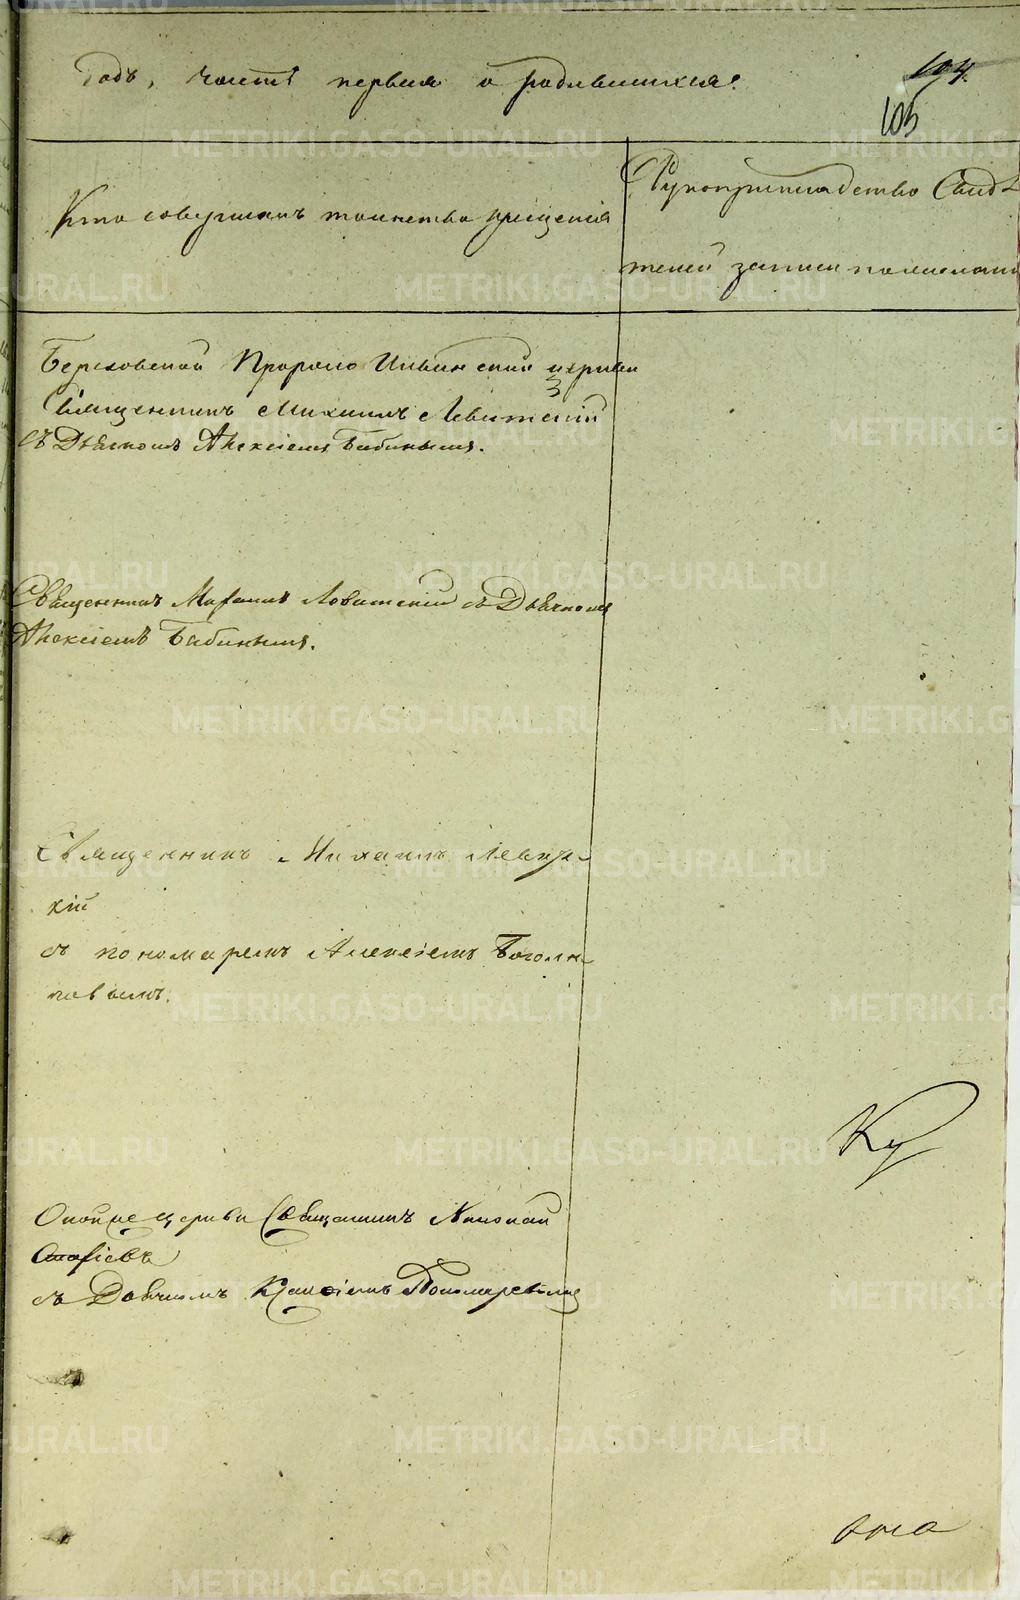 Годъ, часть первая о родившихся.
104.
103
Кто совершалъ таинство крещенія
Рукоприкладство Свидѣ
телей записи по желанію
Пророко Ильинской церкви
Священникъ Михаилъ Левитскій
съ Дьячкомъ Алексіемъ Бабинымъ.
Священникъ Михаилъ Левитскій съ Дьячкомъ
Алексіемъ Бабинымъ.
Священникъ Михаилъ Левит
скій
съ пономаремъ Алексіемъ
церкви Священникъ Николай
съ Дьячкомъ Пономаревымъ
METRIKI.GASO-URAL.RU